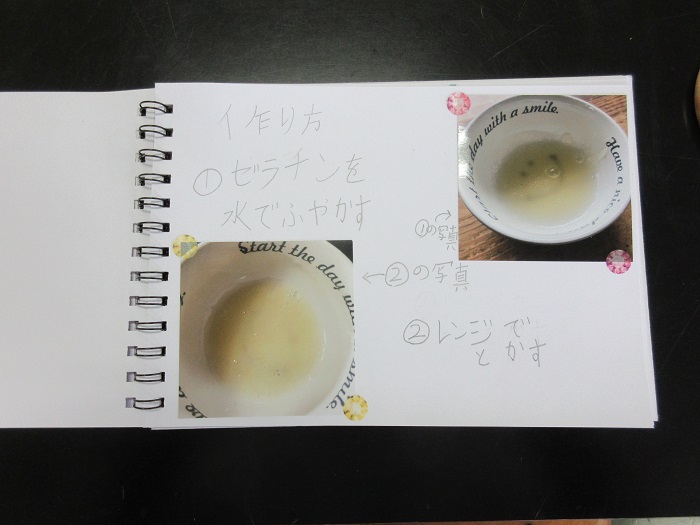 イ作り方
①ゼラチンを
水でふやかす
①の写真
←②の写真
②レンジで
とかす
Start the day with a smile.
Have a nice
day with a smile.